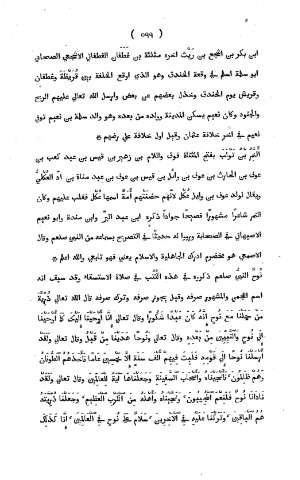 ( ٥٩٩ )
ابى بكر بن اشجع بن رَيْث اخره مثلثة بن غَطَفان الغطفانى الاشجعى الصحابى
ابو سلمة اسلم فى وقعة الخندق وهو الذى اوقع الخلفة بين قُرَيْظَة وغطفان
وقريش يوم الخندق وخذل بعضهم عن بعض وارسل الله تعالى عليهم الريح
والجنود وكان نعيم يسكن المدينة وولده من بعده وهو والد سلمة بن نعيم توفى
نعيم فى اخر خلافة عثمان وقيل اول خلافة على رضهم ۞
النَّمِر بن تَوْلَب بفتح المثناة فوق واللام بن زهير بن قيس بن عبد كعب بن
عوف بن الحارث بن عوف بن وائل بن قيس بن عوف بن عبد مناة بن اد العُكْلِىُّ
ويقال لولد عوف بن وايل عُكْل لانهم حضنتهم أَمَةٌ اسمها عُكْل فغلب عليهم وكان
النمر شاعرا مشهورا فصيحا جوادا ذكره ابن عبد البرّ وابن مندة وابو نعيم
الاصبهانى فى الصحابة ورووا له حديثا فى التصريح بسماعه من النبى صلعم وقال
الاصمعى هو مخضرم ادرك الجاهلية والاسلام يعنى فهو تابعى والله اعلم ۞
نُوحٌ النبىُّ صلعم ذكروه فى هذه الكتب فى صلاة الاستسقاء وقد سبق انه
اسم اعجمى والمشهور صرفه وقيل يجوز صرفه وترك صرفه قال الله تعالى ذُرِّيَّةَ
مَنْ حَمَلْنَا مَعَ نُوحٍ إِنَّهُ كَانَ عَبْدًا شَكُورًا وقال تعالى إِنَّا أَوْحَيْنَا إِلَيْكَ كَمَا أَوْحَيْنَا
إِلَى نُوحٍ وَٱلنَّبِيِّينَ مِنْ بَعْدِهِ وقال تعالى وَنُوحًا هَدَيْنَا مِنْ قَبْلُ وقال تعالى وَلَقَدْ
أَرْسَلْنَا نُوحًا إِلَى قَوْمِهِ فَلَبِثَ فِيهِمْ أَلْفَ سَنَةٍ إِلَّا خَمْسِينَ عَامًا فَأَخَذَهُمُ ٱلطُّوفَانُ
وَهُمْ ظَالِمُونَ فَأَنْجَيْنَاهُ وَأَصْحَابَ ٱلسَّفِينَةِ وَجَعَلْنَاهَا آيَةً لِلْعَالَمِينَ وقال تعالى وَلَقَدْ
نَادَانَا نُوحٌ فَلَنِعْمَ ٱلْمُجِيبُونَ وَنَجَّيْنَاهُ وَأَهْلَهُ مِنَ ٱلْكَرْبِ ٱلْعَظِيمِ وَجَعَلْنَا ذُرِّيَّتَهُ
هُمُ ٱلْبَاقِينَ وَتَرَكْنَا عَلَيْهِ فِى ٱلْآخِرِينَ سَلَامٌ عَلَى نُوحٍ فِى ٱلْعَالَمِينَ إِنَّا كَذَلِكَ